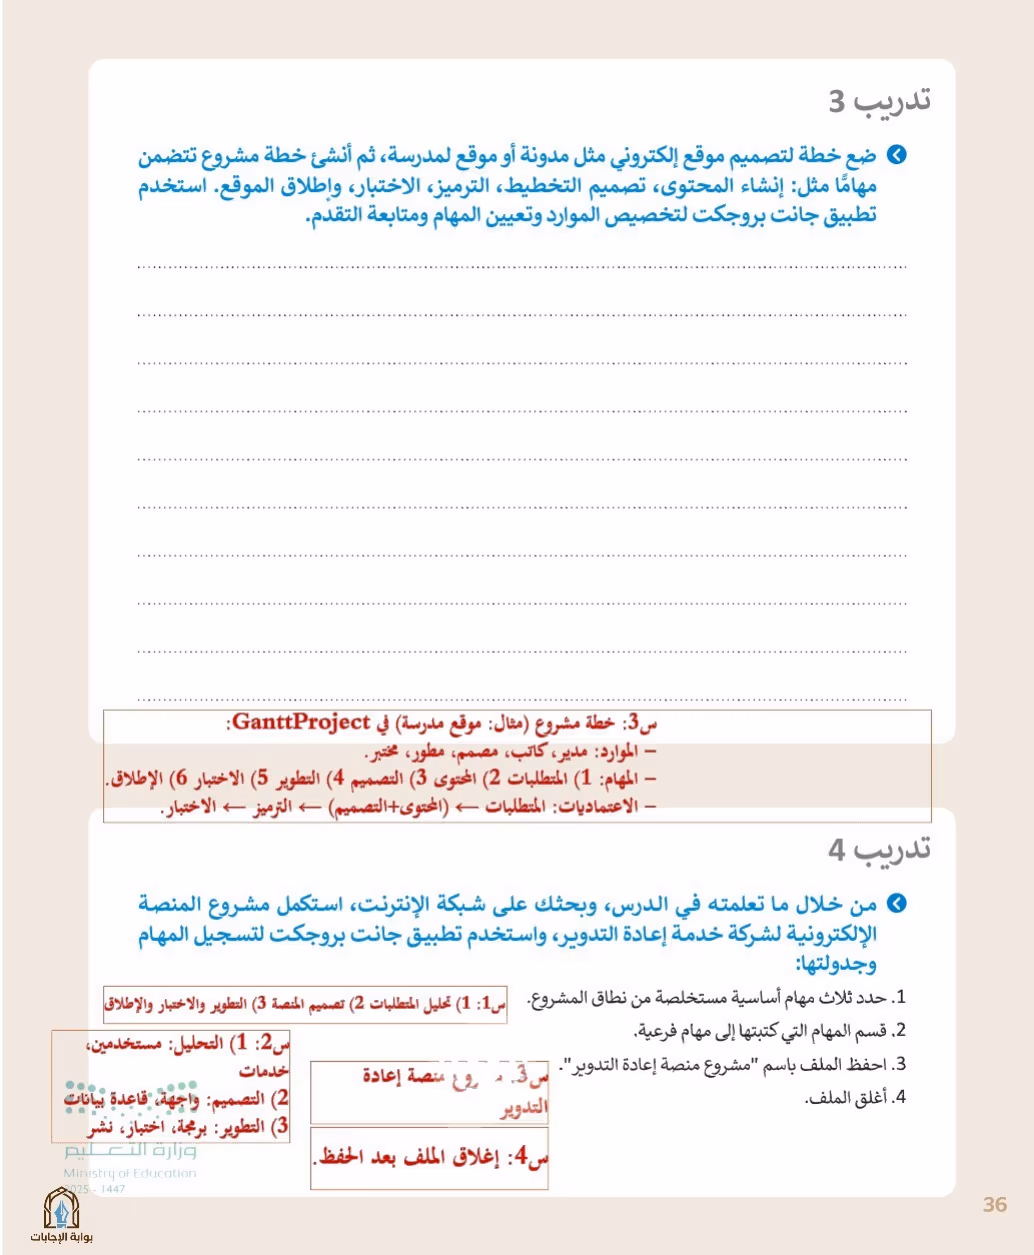 تدريب 3
ضع خطة لتصميم موقع إلكتروني مثل مدونة أو موقع لمدرسة، ثم أنشئ خطة مشروع تتضمن
مهامًا مثل: إنشاء المحتوى، تصميم التخطيط، الترميز، الاختبار، وإطلاق الموقع. استخدم
تطبيق جانت بروجكت لتخصيص الموارد وتعيين المهام ومتابعة التقدم.
س3: خطة مشروع (مثال: موقع مدرسة) في GanttProject:
– الموارد: مدير، كاتب، مصمم، مطور، مختبر.
– المهام: 1) المتطلبات 2) المحتوى 3) التصميم 4) التطوير 5) الاختبار 6) الإطلاق.
– الاعتماديات: المتطلبات ← (المحتوى+التصميم) ← الترميز ← الاختبار.
تدريب 4
من خلال ما تعلمته في الدرس، وبحثك على شبكة الإنترنت، استكمل مشروع المنصة
الإلكترونية لشركة خدمة إعادة التدوير، واستخدم تطبيق جانت بروجكت لتسجيل المهام
وجدولتها:
1. حدد ثلاث مهام أساسية مستخلصة من نطاق المشروع.
س1: 1) تحليل المتطلبات 2) تصميم المنصة 3) التطوير والاختبار والإطلاق
2. قسم المهام التي كتبتها إلى مهام فرعية.
س2: 1) التحليل: مستخدمين،
خدمات
2) التصميم: واجهة، قاعدة بيانات
3) التطوير: برمجة، اختبار، نشر
3. احفظ الملف باسم "مشروع منصة إعادة التدوير".
س3: منصة إعادة
التدوير
4. أغلق الملف.
س4: إغلاق الملف بعد الحفظ.
وزارة التعليم
Ministry of Education
2025 - 1447
بوابة الإجابات
36